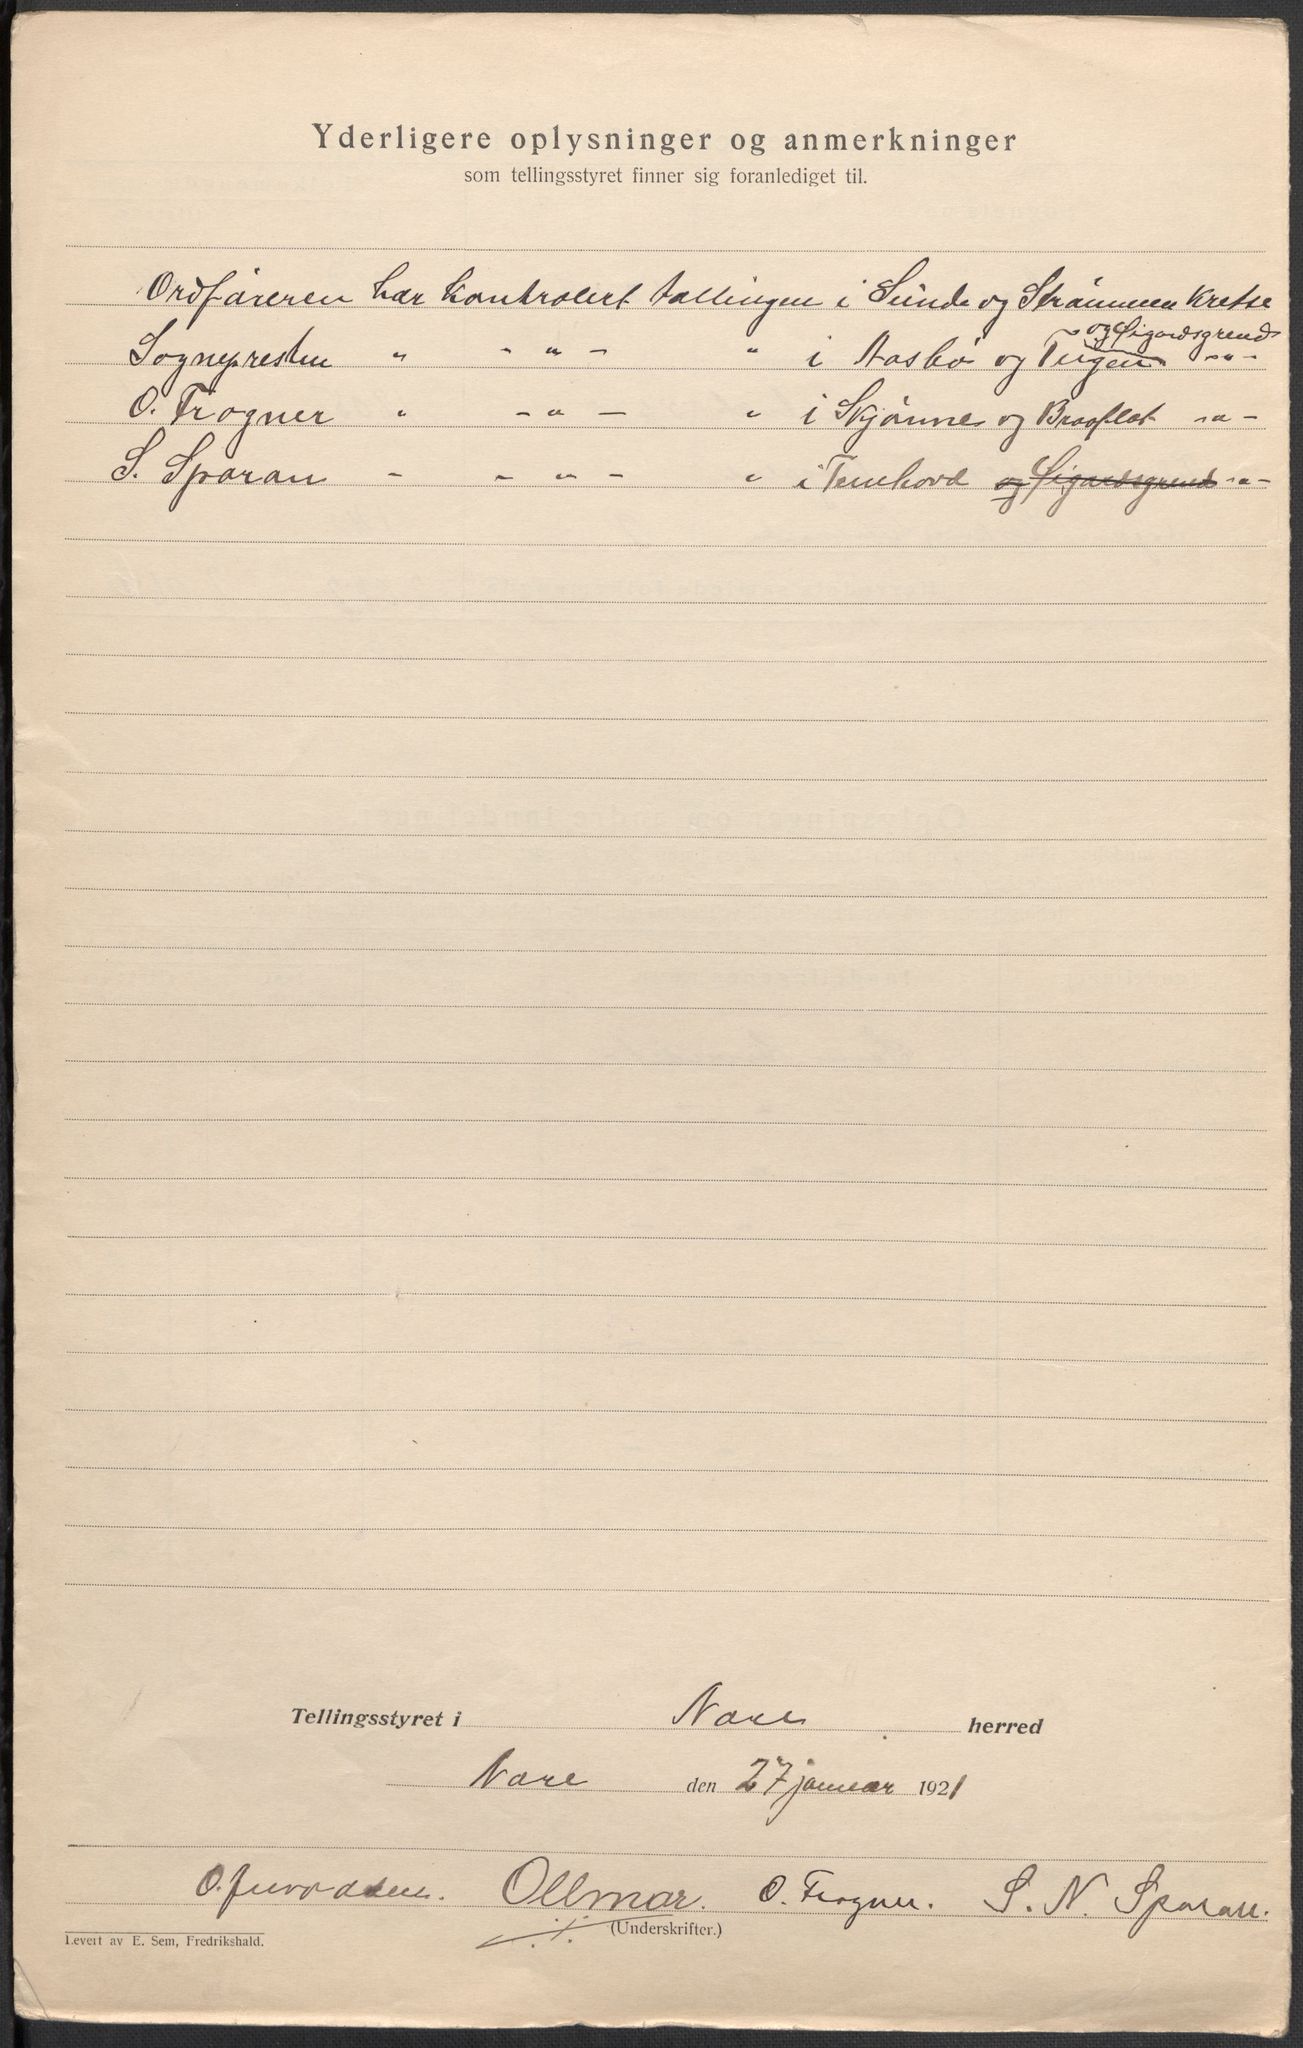 Yderligere oplysninger og anmerkninger
som tellingsstyret finner sig foranlediget til.
Ordføreren har kontrolert tællingen i Sunde og Strømmen Kretse
og Øigardsgrend
Sognepresten " - " - " i Aasbø og Tugen - " -
O. Frogner " - " - " i Skjønne og Braaflat - " -
S. Sporan - - " - " i Tunhovd og Øigardsgrend - " -
Tellingsstyret i Nore herred
Nore den 27 januar 1921
O. Juvodden. Ollmar. O. Frogner. S. N. Sporan.
(Underskrifter.)
Levert av E. Sem, Fredrikshald.